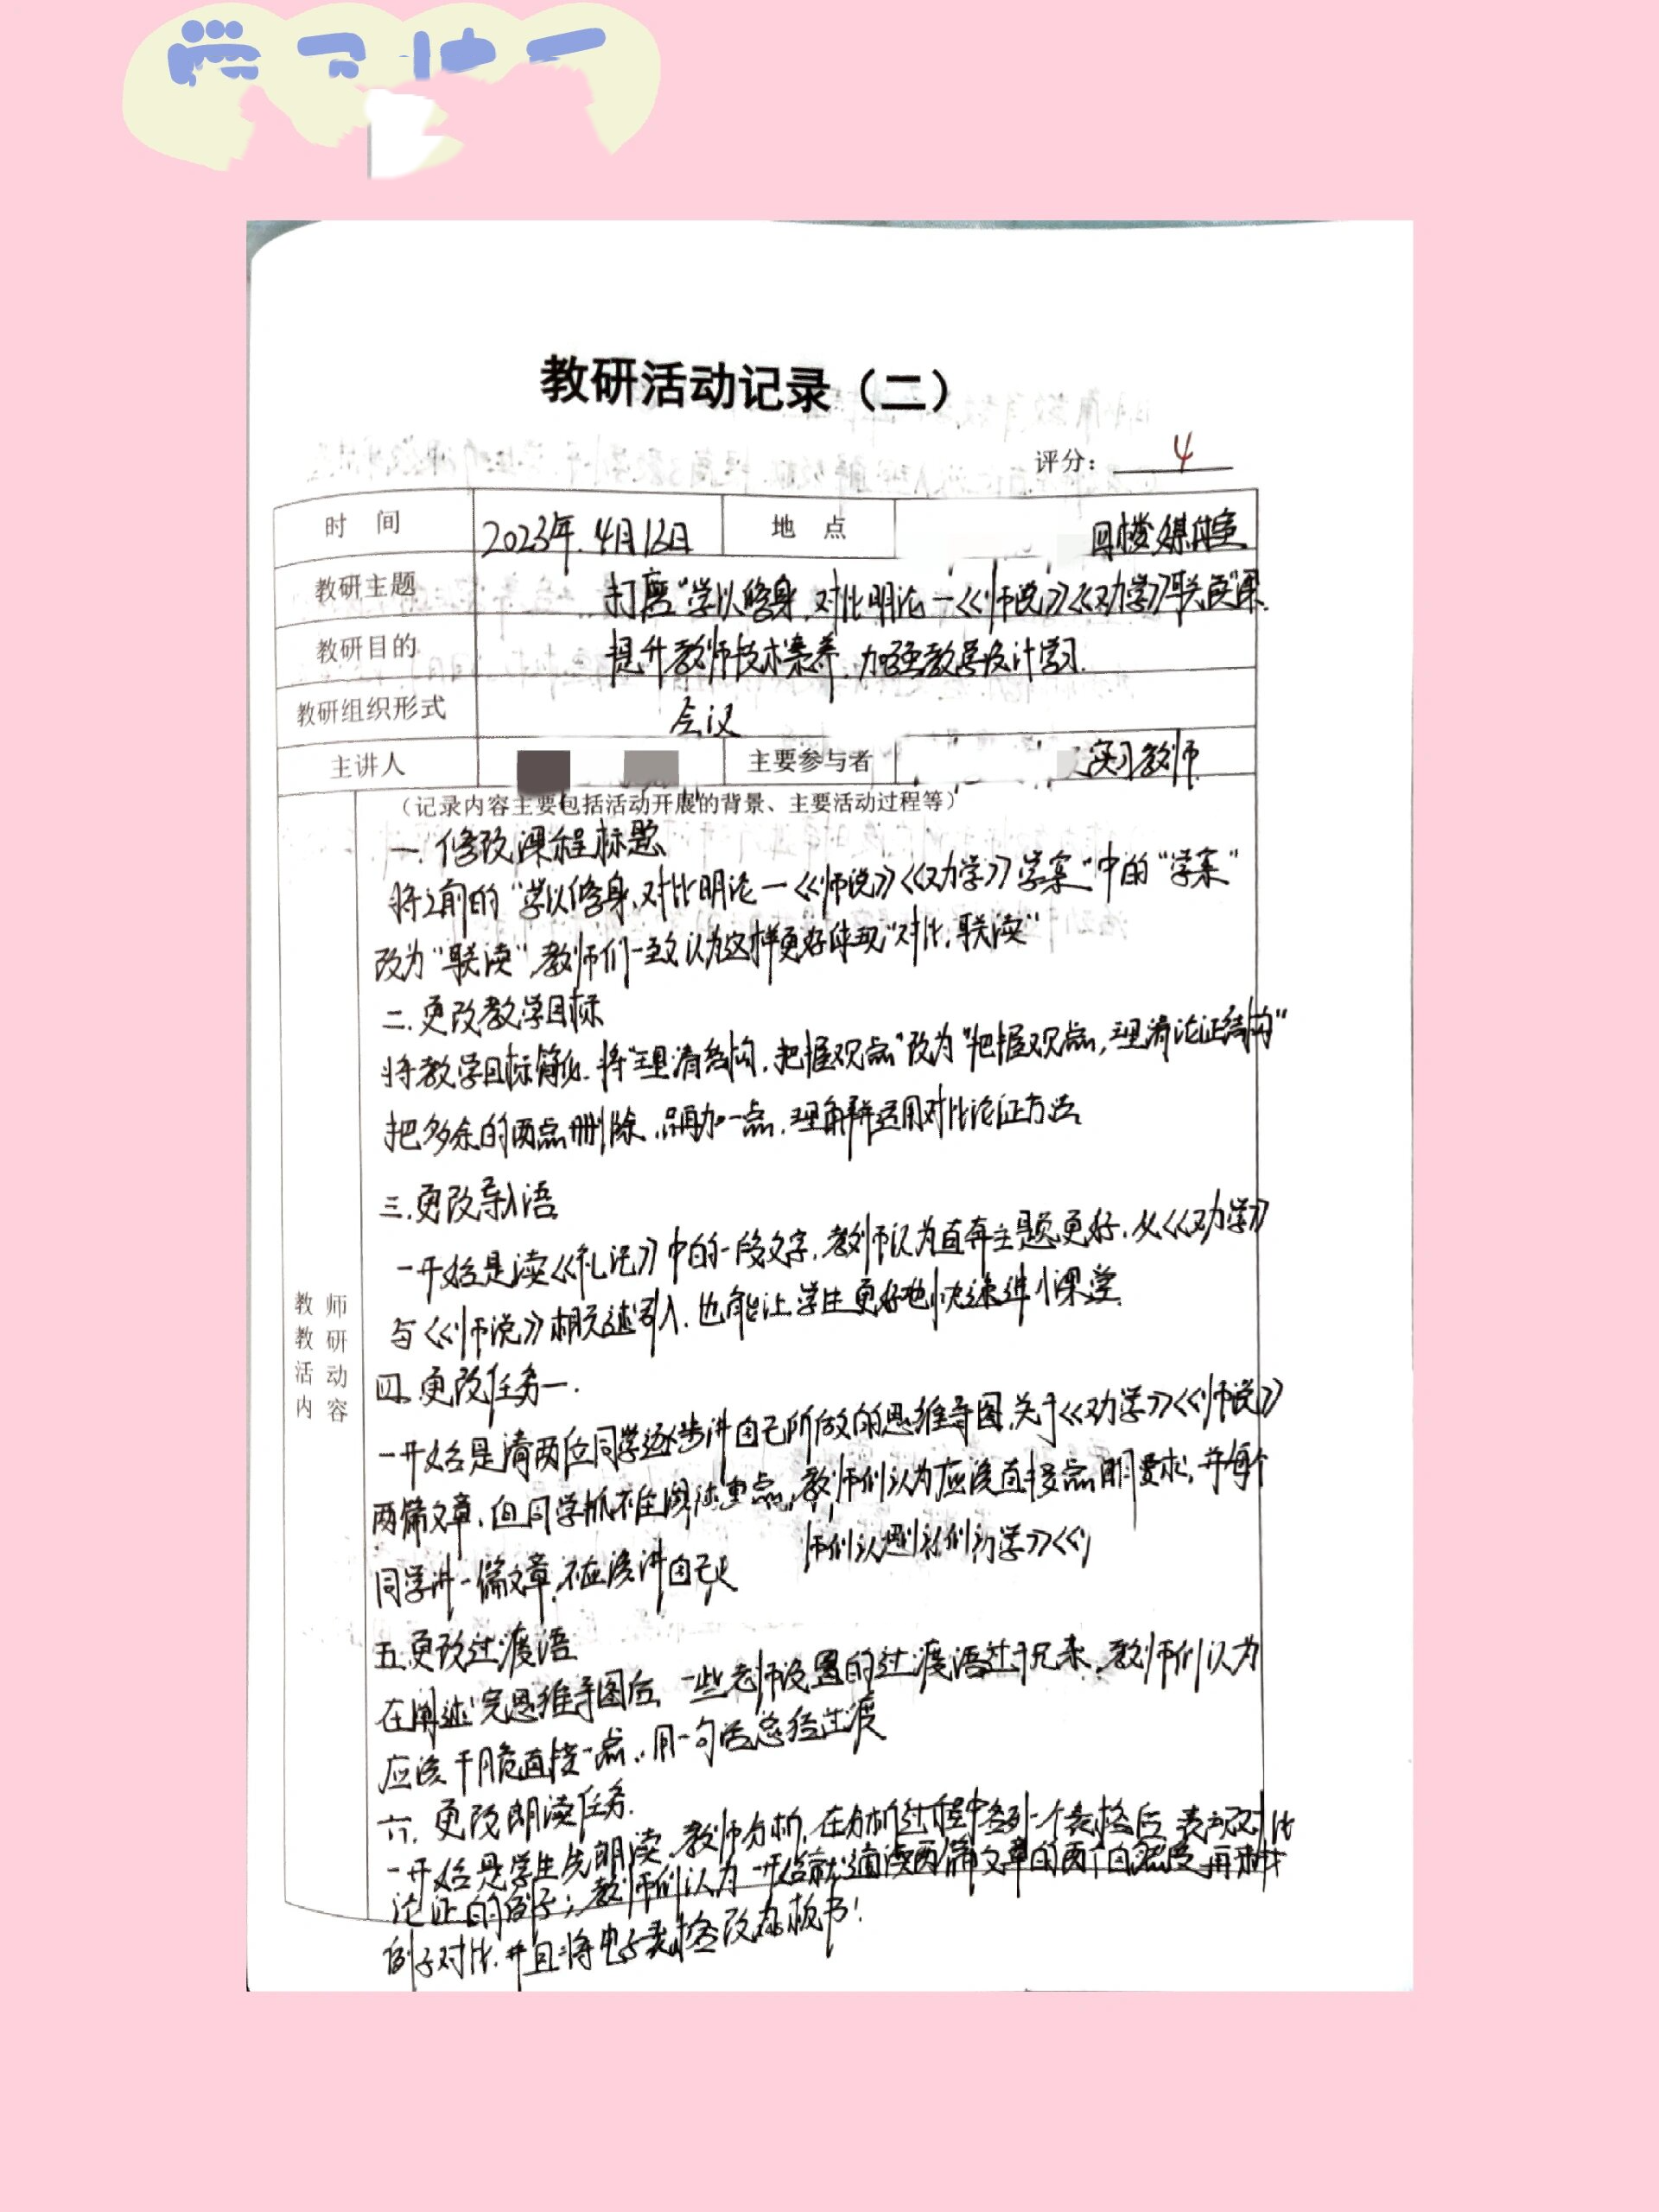 教研活动记录（二）
评分：4
时 间 2023年.4月13日 地 点 四楼媒体室
教研主题 打磨“学以修身，对比明论—《师说》《劝学》联读”课.
教研目的 提升教师技术素养，加强教学设计学习.
教研组织形式 会议
主讲人 主要参与者 实习教师
（记录内容主要包括活动开展的背景、主要活动过程等）
一.修改课程标题
将之前的“学以修身，对比明论—《师说》《劝学》学案”中的“学案”
改为“联读”，教师们一致认为这样更好体现“对比，联读”
二.更改教学目标
将教学目标简化.将“理清结构，把握观点”改为“把握观点，理清论证结构”
把多余的两点删除，只再加一点，理解并运用对比论证方法
三.更改导入语
一开始是读《礼记》中的一段文字，教师认为直奔主题更好，从《劝学》
与《师说》相关述引入，也能让学生更好地快速进入课堂.
四.更改任务一.
一开始是请两位同学逐步讲自己所做的思维导图，关于《劝学》《师说》
两篇文章，但同学抓不住阐述重点，教师们认为应该直接点明要求，并每个
同学讲一篇文章，不应该讲自己
五.更改过渡语
在阐述完思维导图后，一些老师设置的过渡语过于冗杂，教师们认为
应该干脆直接一点，用一句话总结过渡
六.更改朗读任务.
一开始是学生先朗读，教师分析，在分析过程中各列一个表格后，表现对比
论证的例子；教师们认为一开始就通读两篇文章的两个自然段，再找
例子对比，并且将电子表格改为板书！
教师
教研
活动
内容